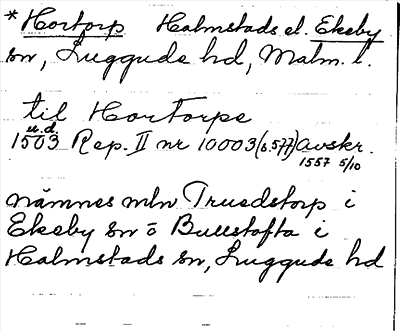 * Hortorp Halmstads el. Ekeby
sn, Luggude hd, Malm. l.
til HorTorpe
u.d.
1503 Rep. II nr 10003 (6,577) Avskr.
1557 5/10
nämnes mln Truedstorp i
Ekeby sn o Bullstofta i
Halmstads sn, Luggude hd